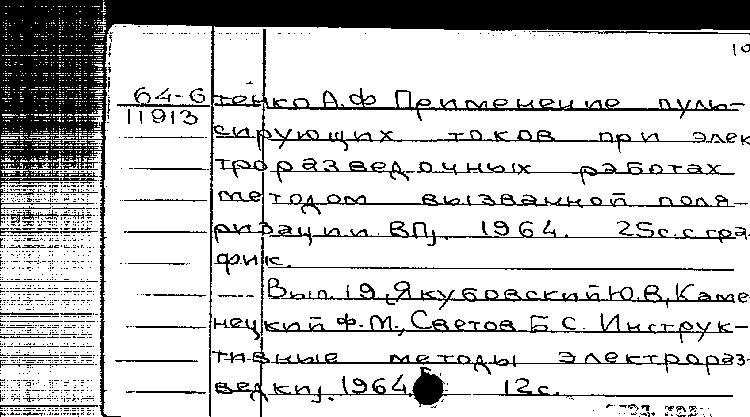 10
64-6 тенко А.Ф Применение пуль-
11913
сирующих токов при элек
троразведочных работах
методом вызванной поля-
ризации ВП, 1964. 25с. с гра
фик.
Вып. 19, Якубовский Ю.В, Каме
нецкий Ф.М., Светов Б С. Инструк-
тивные методы электрораз-
ведки, 1964. 12с.